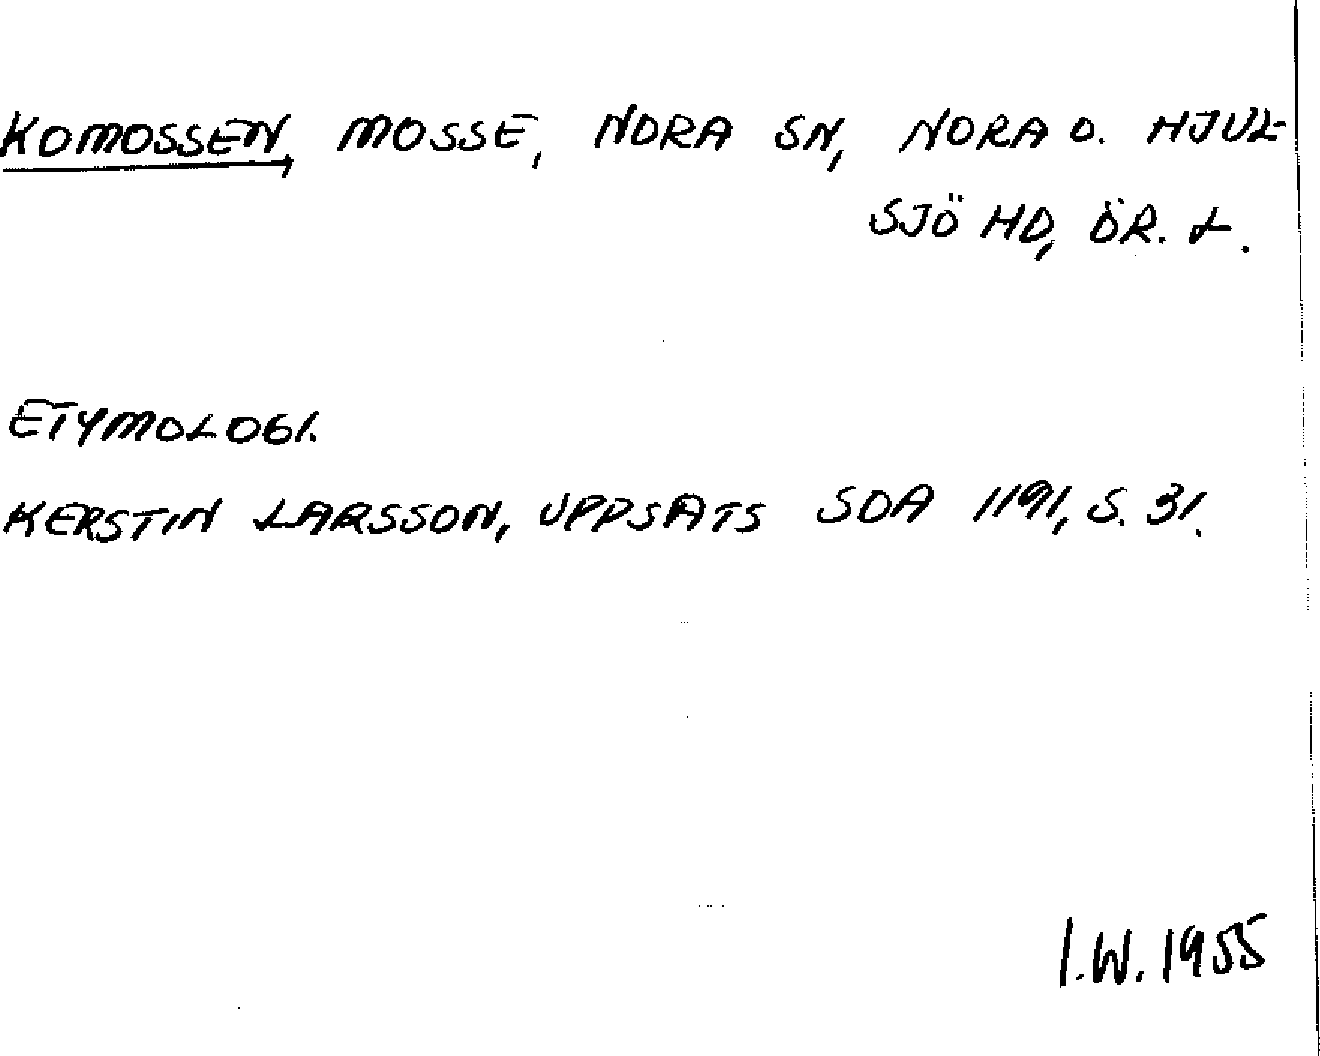 KOMOSSEN, MOSSE, NORA SN, NORA O. HJUL-
SJÖ HD, ÖR. L.
ETYMOLOGI.
KERSTIN LARSSON, UPPSATS SOA 1191, S. 31.
I.W. 1955